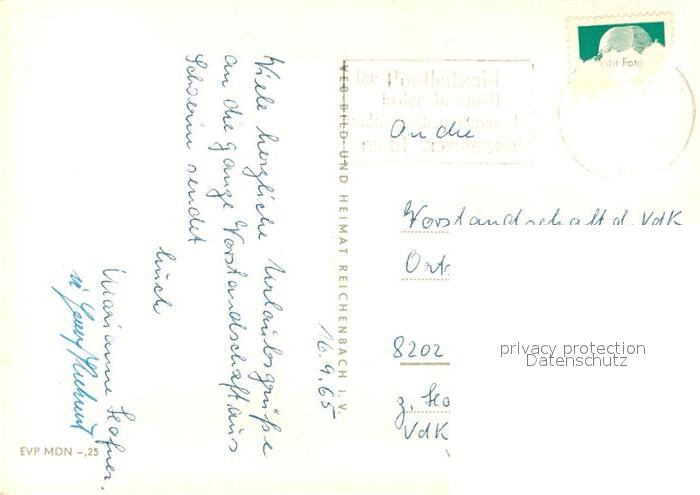 Viele herzliche Urlaubsgrüße
an die ganze Vorstandschaft aus
Schwerin sendet
Euch
Marianne Hofner.
16.9.65
VEB BILD UND HEIMAT REICHENBACH I. V.
EVP MDN -,25
Die Postleitzahl
in der Anschrift
nicht vergessen!
An die
Vorstandschaft d. VdK
Orts
8202
z. Ha
VdK
Foto
privacy protection
Datenschutz